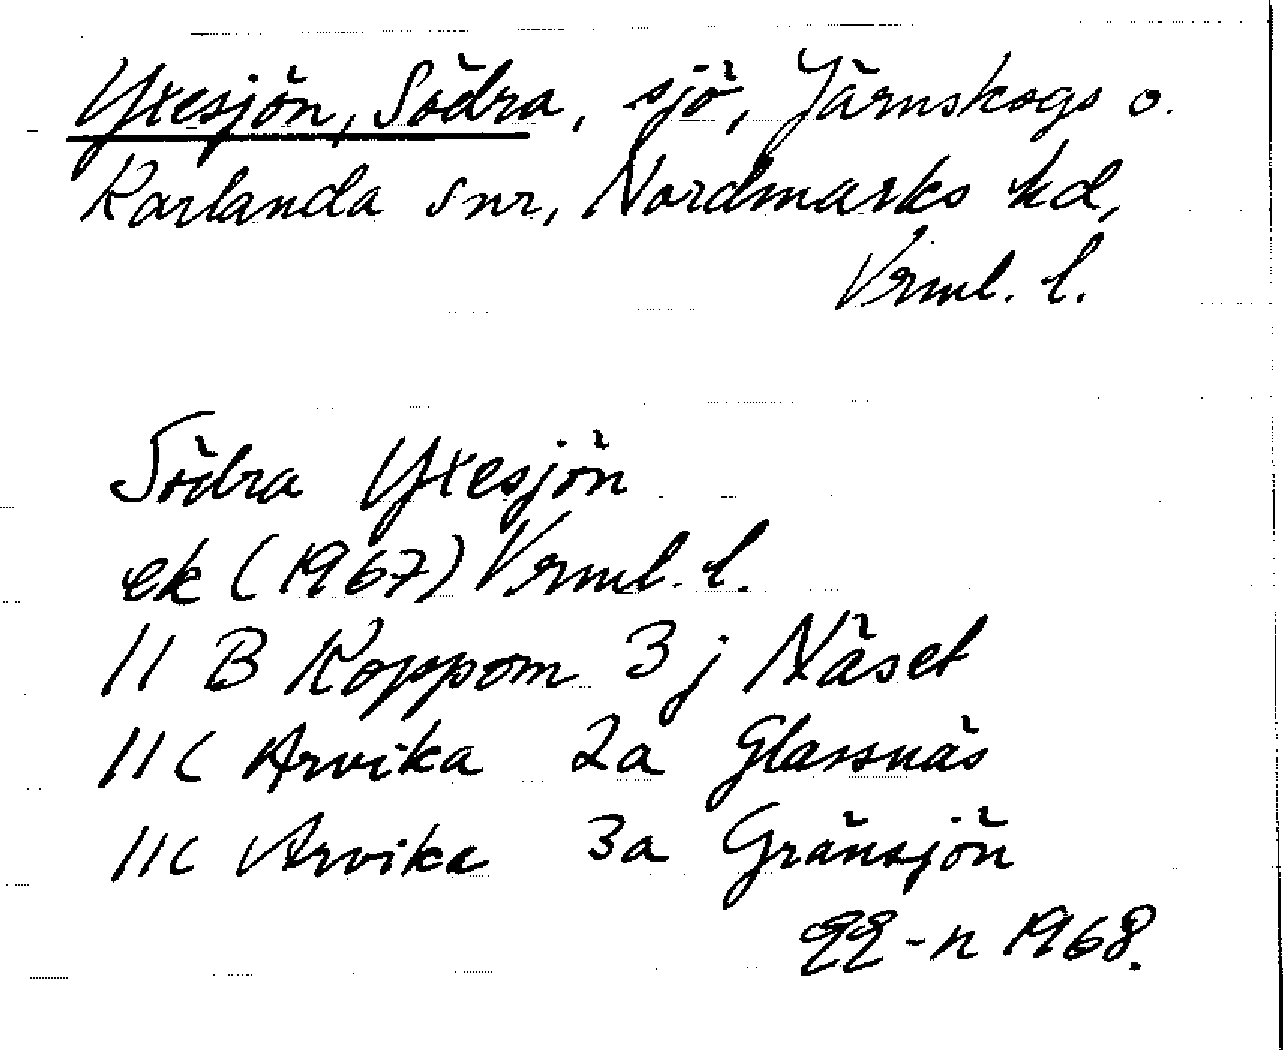 Yxesjön, Södra, sjö, Järnskogs o.
Karlanda snr, Nordmarks hd,
Vrml. l.
Södra Yxesjön
ek (1967) Vrml. l.
11 B Koppom 3 j Näset
11C Arvika 2a Glassnäs
11C Arvika 3a Gränsjön
1968.